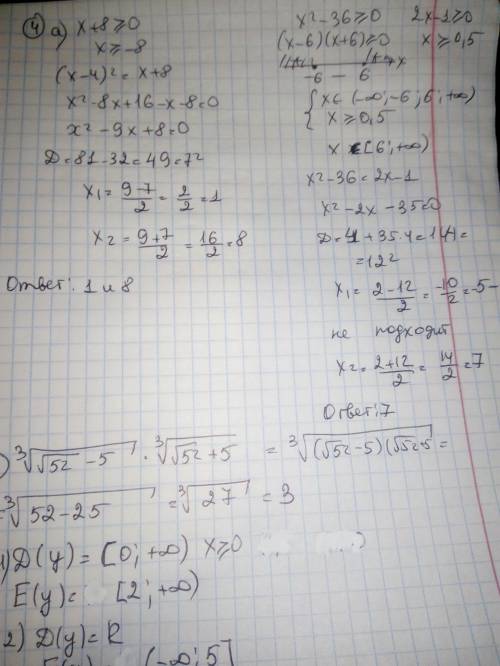 ④ а) x+8≥0
x≥-8
(x-4)²=x+8
x²-8x+16-x-8=0
x²-9x+8=0
D=81-32=49=7²
x₁=(9-7)/2=2/2=1
x₂=(9+7)/2=16/2=8
Ответ: 1 и 8
x²-36≥0 2x-1≥0
(x-6)(x+6)≥0 x≥0,5
-6 - 6 x
{x∈(-∞;-6;6;+∞)
x≥0,5
x∈[6;+∞)
x²-36=2x-1
x²-2x-35=0
D=4+35·4=144=
=12²
x₁=(2-12)/2=-10/2=-5-
не подходит
x₂=(2+12)/2=14/2=7
Ответ:7
) ∛(√52-5)·∛(√52+5)=∛((√52-5)(√52+5=
=∛(52-25)=∛27=3
1) D(y)=[0;+∞) x≥0
E(y)=[2;+∞)
2) D(y)=R
E(y)= (-∞;5]